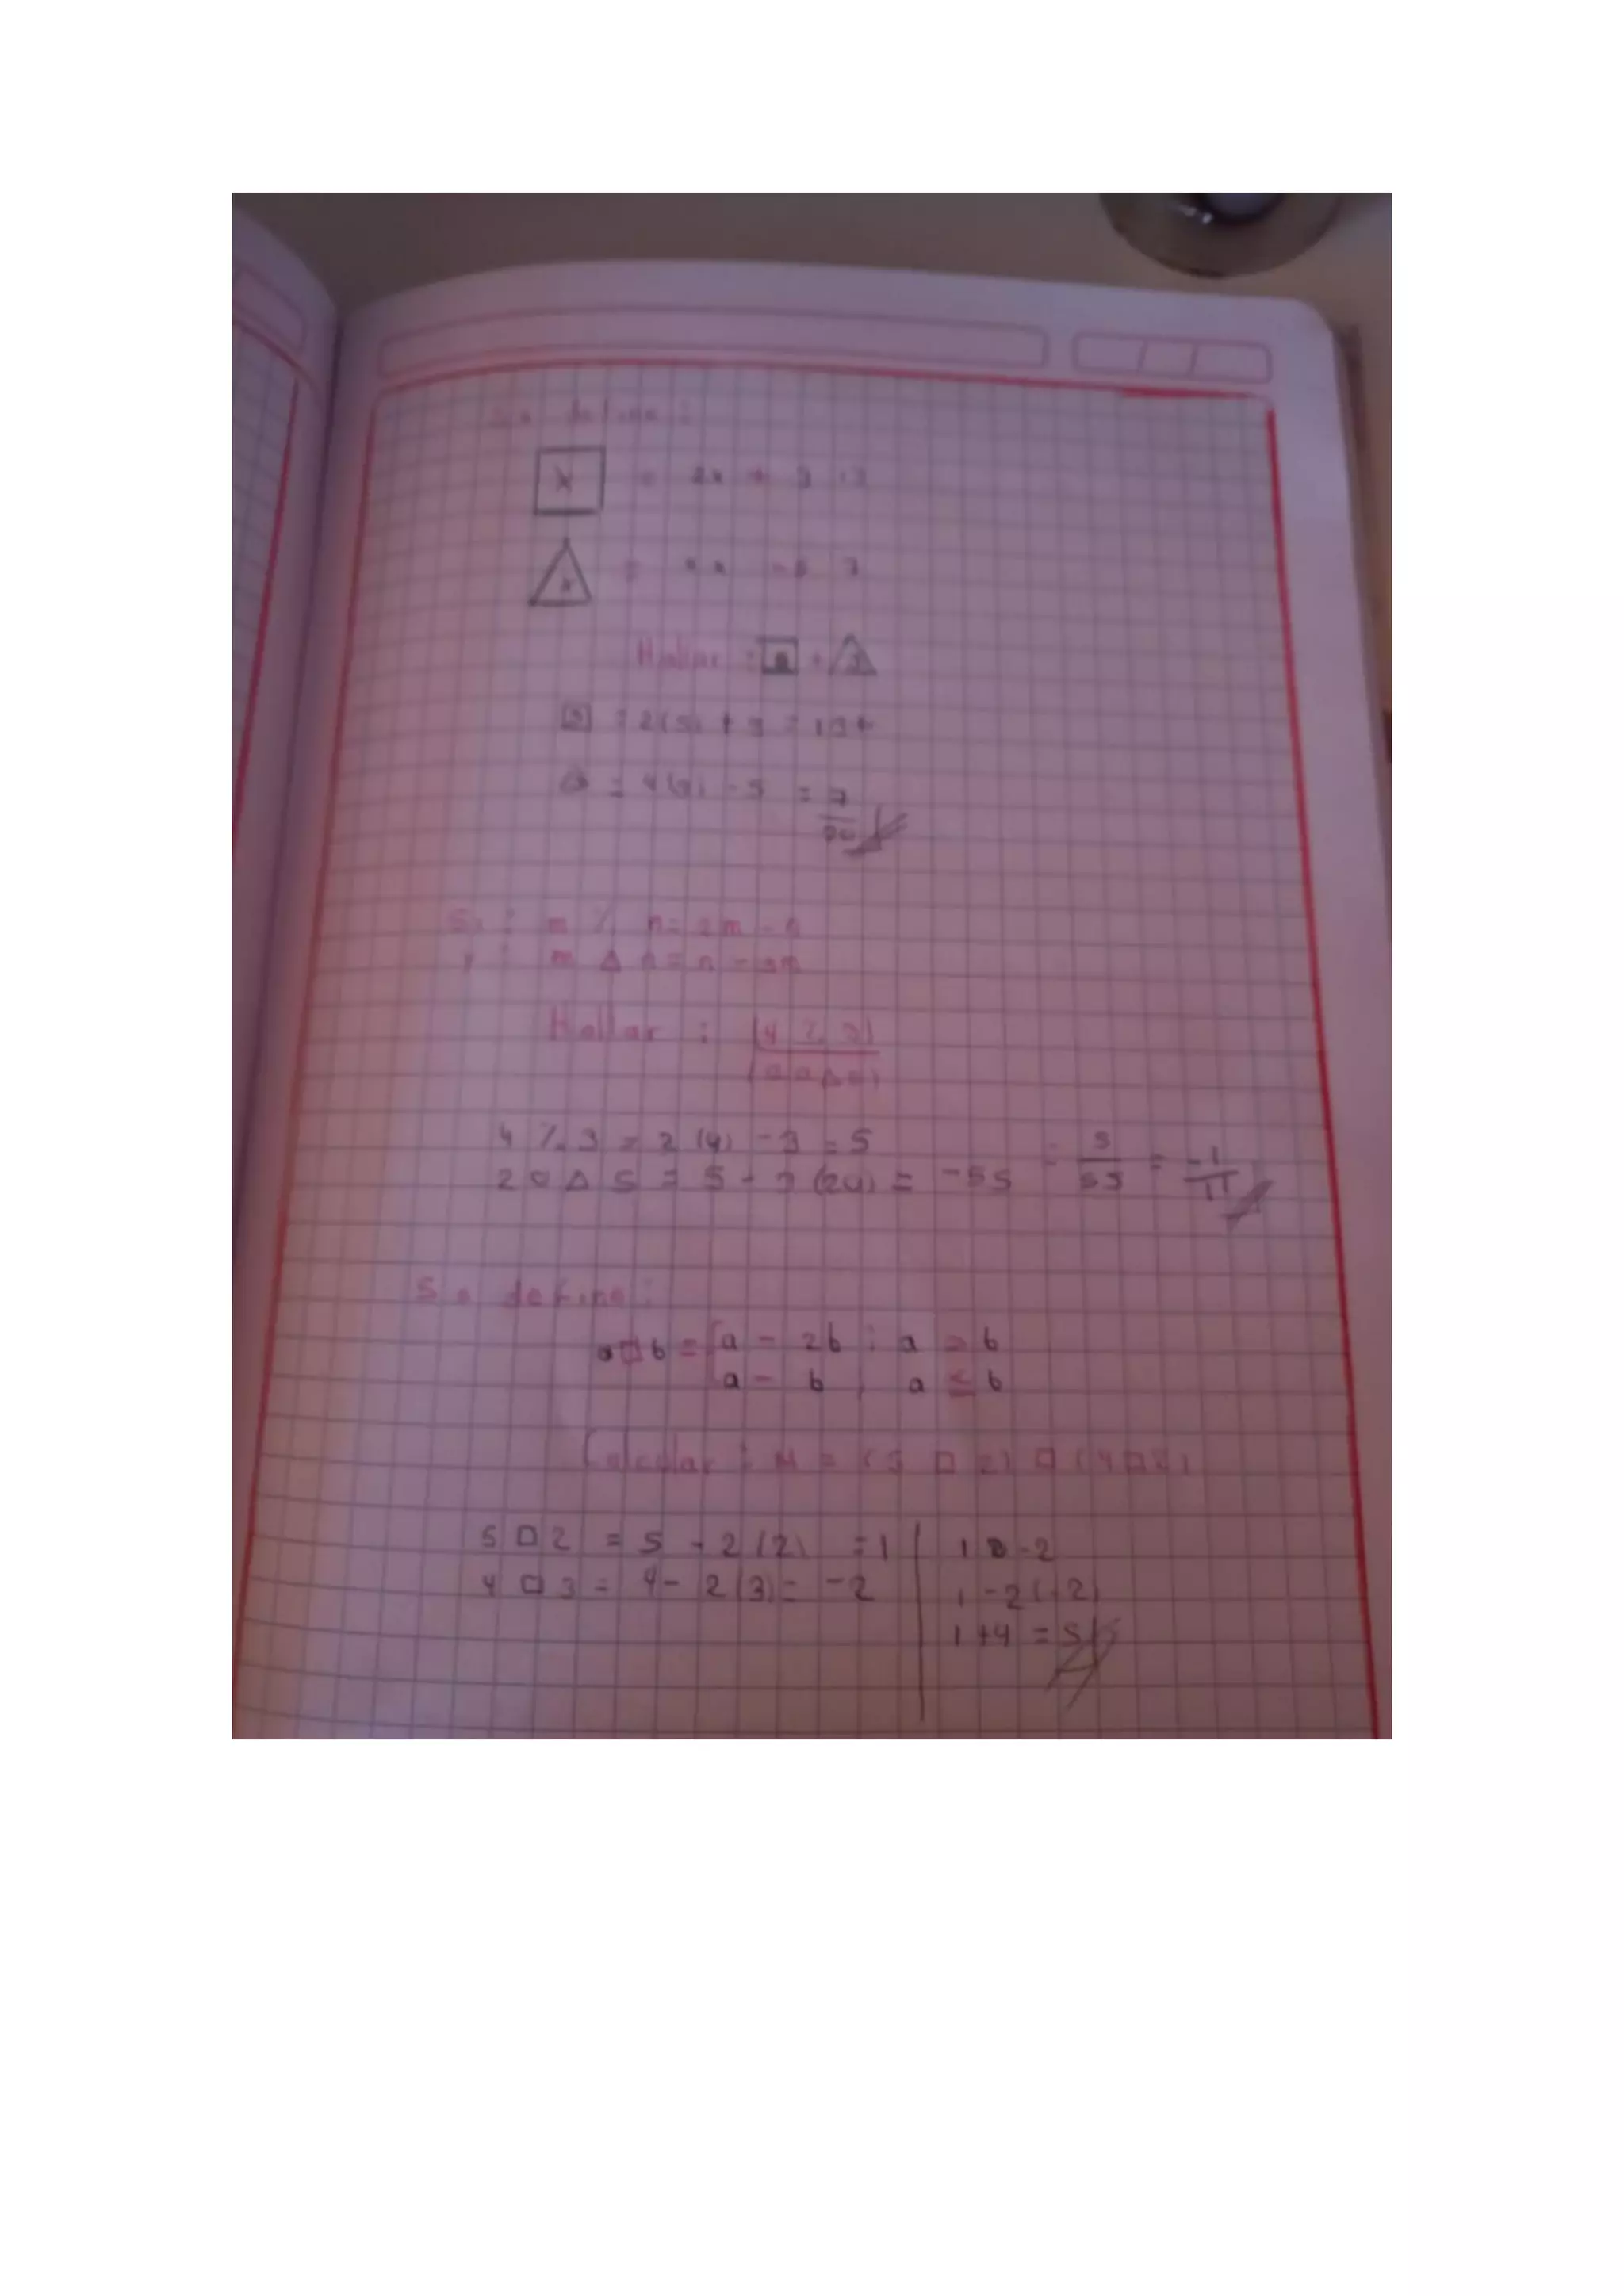 Se define :
x = 2x + 3
x
Hallar :
= 2(5) + 3 = 13 +
△ = 4(3) - 5 = 7
20
Si : m % n = 2m - n
y : m △ n = n - 3m
Hallar : (4 % 3)
4 % 3 = 2 (4) - 3 = 5
20 △ 5 = 5 - 3 (20) = -55 = 5/55 = -1/11
Se define :
a □ b = a - 2b ; a > b
a - b ; a ≤ b
Calcular : M = (5 □ 2) □ (4 □
5 □ 2 = 5 - 2 (2) = 1
4 □ 3 = 4 - 2 (3) = -2
1 □ -2
1 - 2 (-2)
1 + 4 = 5